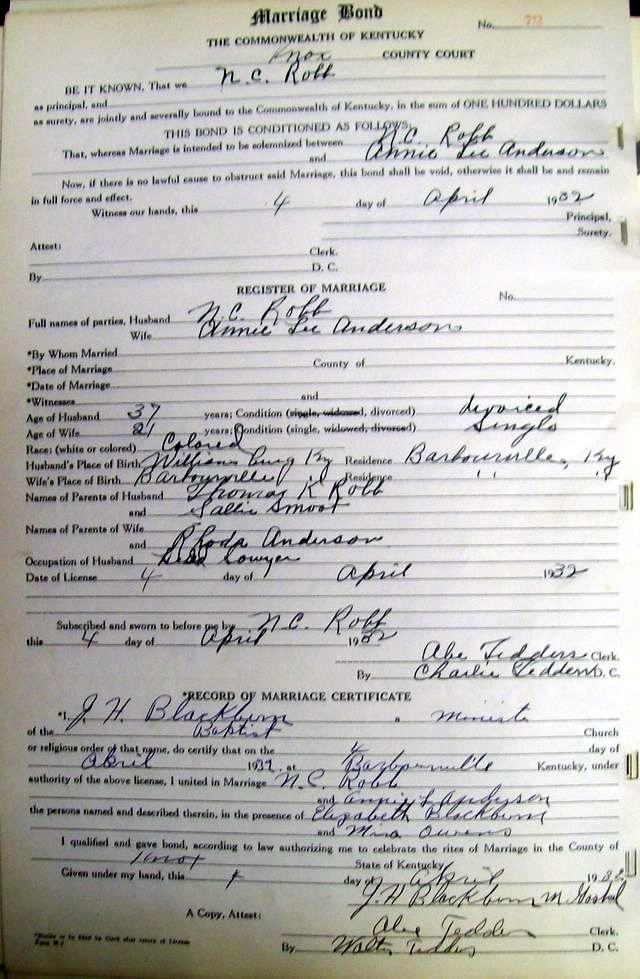 Marriage Bond
No. 72
THE COMMONWEALTH OF KENTUCKY
Knox COUNTY COURT
BE IT KNOWN, That we N. C. Robb
as principal, and
as surety, are jointly and severally bound to the Commonwealth of Kentucky, in the sum of ONE HUNDRED DOLLARS
THIS BOND IS CONDITIONED AS FOLLOWS:
That, whereas Marriage is intended to be solemnized between N. C. Robb
and Annie Lee Anderson
Now, if there is no lawful cause to obstruct said Marriage, this bond shall be void, otherwise it shall be and remain
in full force and effect.
Witness our hands, this 4 day of April 1932
Principal,
Surety.
Attest:
Clerk.
By D. C.
REGISTER OF MARRIAGE
No.
Full names of parties, Husband N. C. Robb
Wife Annie Lee Anderson
*By Whom Married
*Place of Marriage County of Kentucky.
*Date of Marriage
*Witnesses and
Age of Husband 37 years; Condition (single, widowed, divorced) divorced
Age of Wife 21 years; Condition (single, widowed, divorced) Single
Race: (white or colored) Colored
Husband's Place of Birth Williamsburg Ky Residence Barbourville, Ky
Wife's Place of Birth Barbourville Residence " "
Names of Parents of Husband Thomas K Robb
and Sallie Smoot
Names of Parents of Wife
and Rhoda Anderson
Occupation of Husband Lawyer
Date of License 4 day of April 1932
Subscribed and sworn to before me by N. C. Robb
this 4 day of April 1932
Abe Tedders Clerk.
By Charlie Tedders D. C.
*RECORD OF MARRIAGE CERTIFICATE
*I, J. H. Blackburn a Ministe
of the Baptist Church
or religious order of that name, do certify that on the 4 day of
April 1932, at Barbourville Kentucky, under
authority of the above license, I united in Marriage N. C. Robb
and Annie L Anderson
the persons named and described therein, in the presence of Elizabeth Blackburn
and Mira Owens
I qualified and gave bond, according to law authorizing me to celebrate the rites of Marriage in the County of
Knox State of Kentucky
Given under my hand, this 4 day of April 1932
J. H. Blackburn M. Gospel
A Copy, Attest:
Abe Tedders Clerk.
By Walter Tedders D. C.
*Blanks to be filled by Clerk after return of License